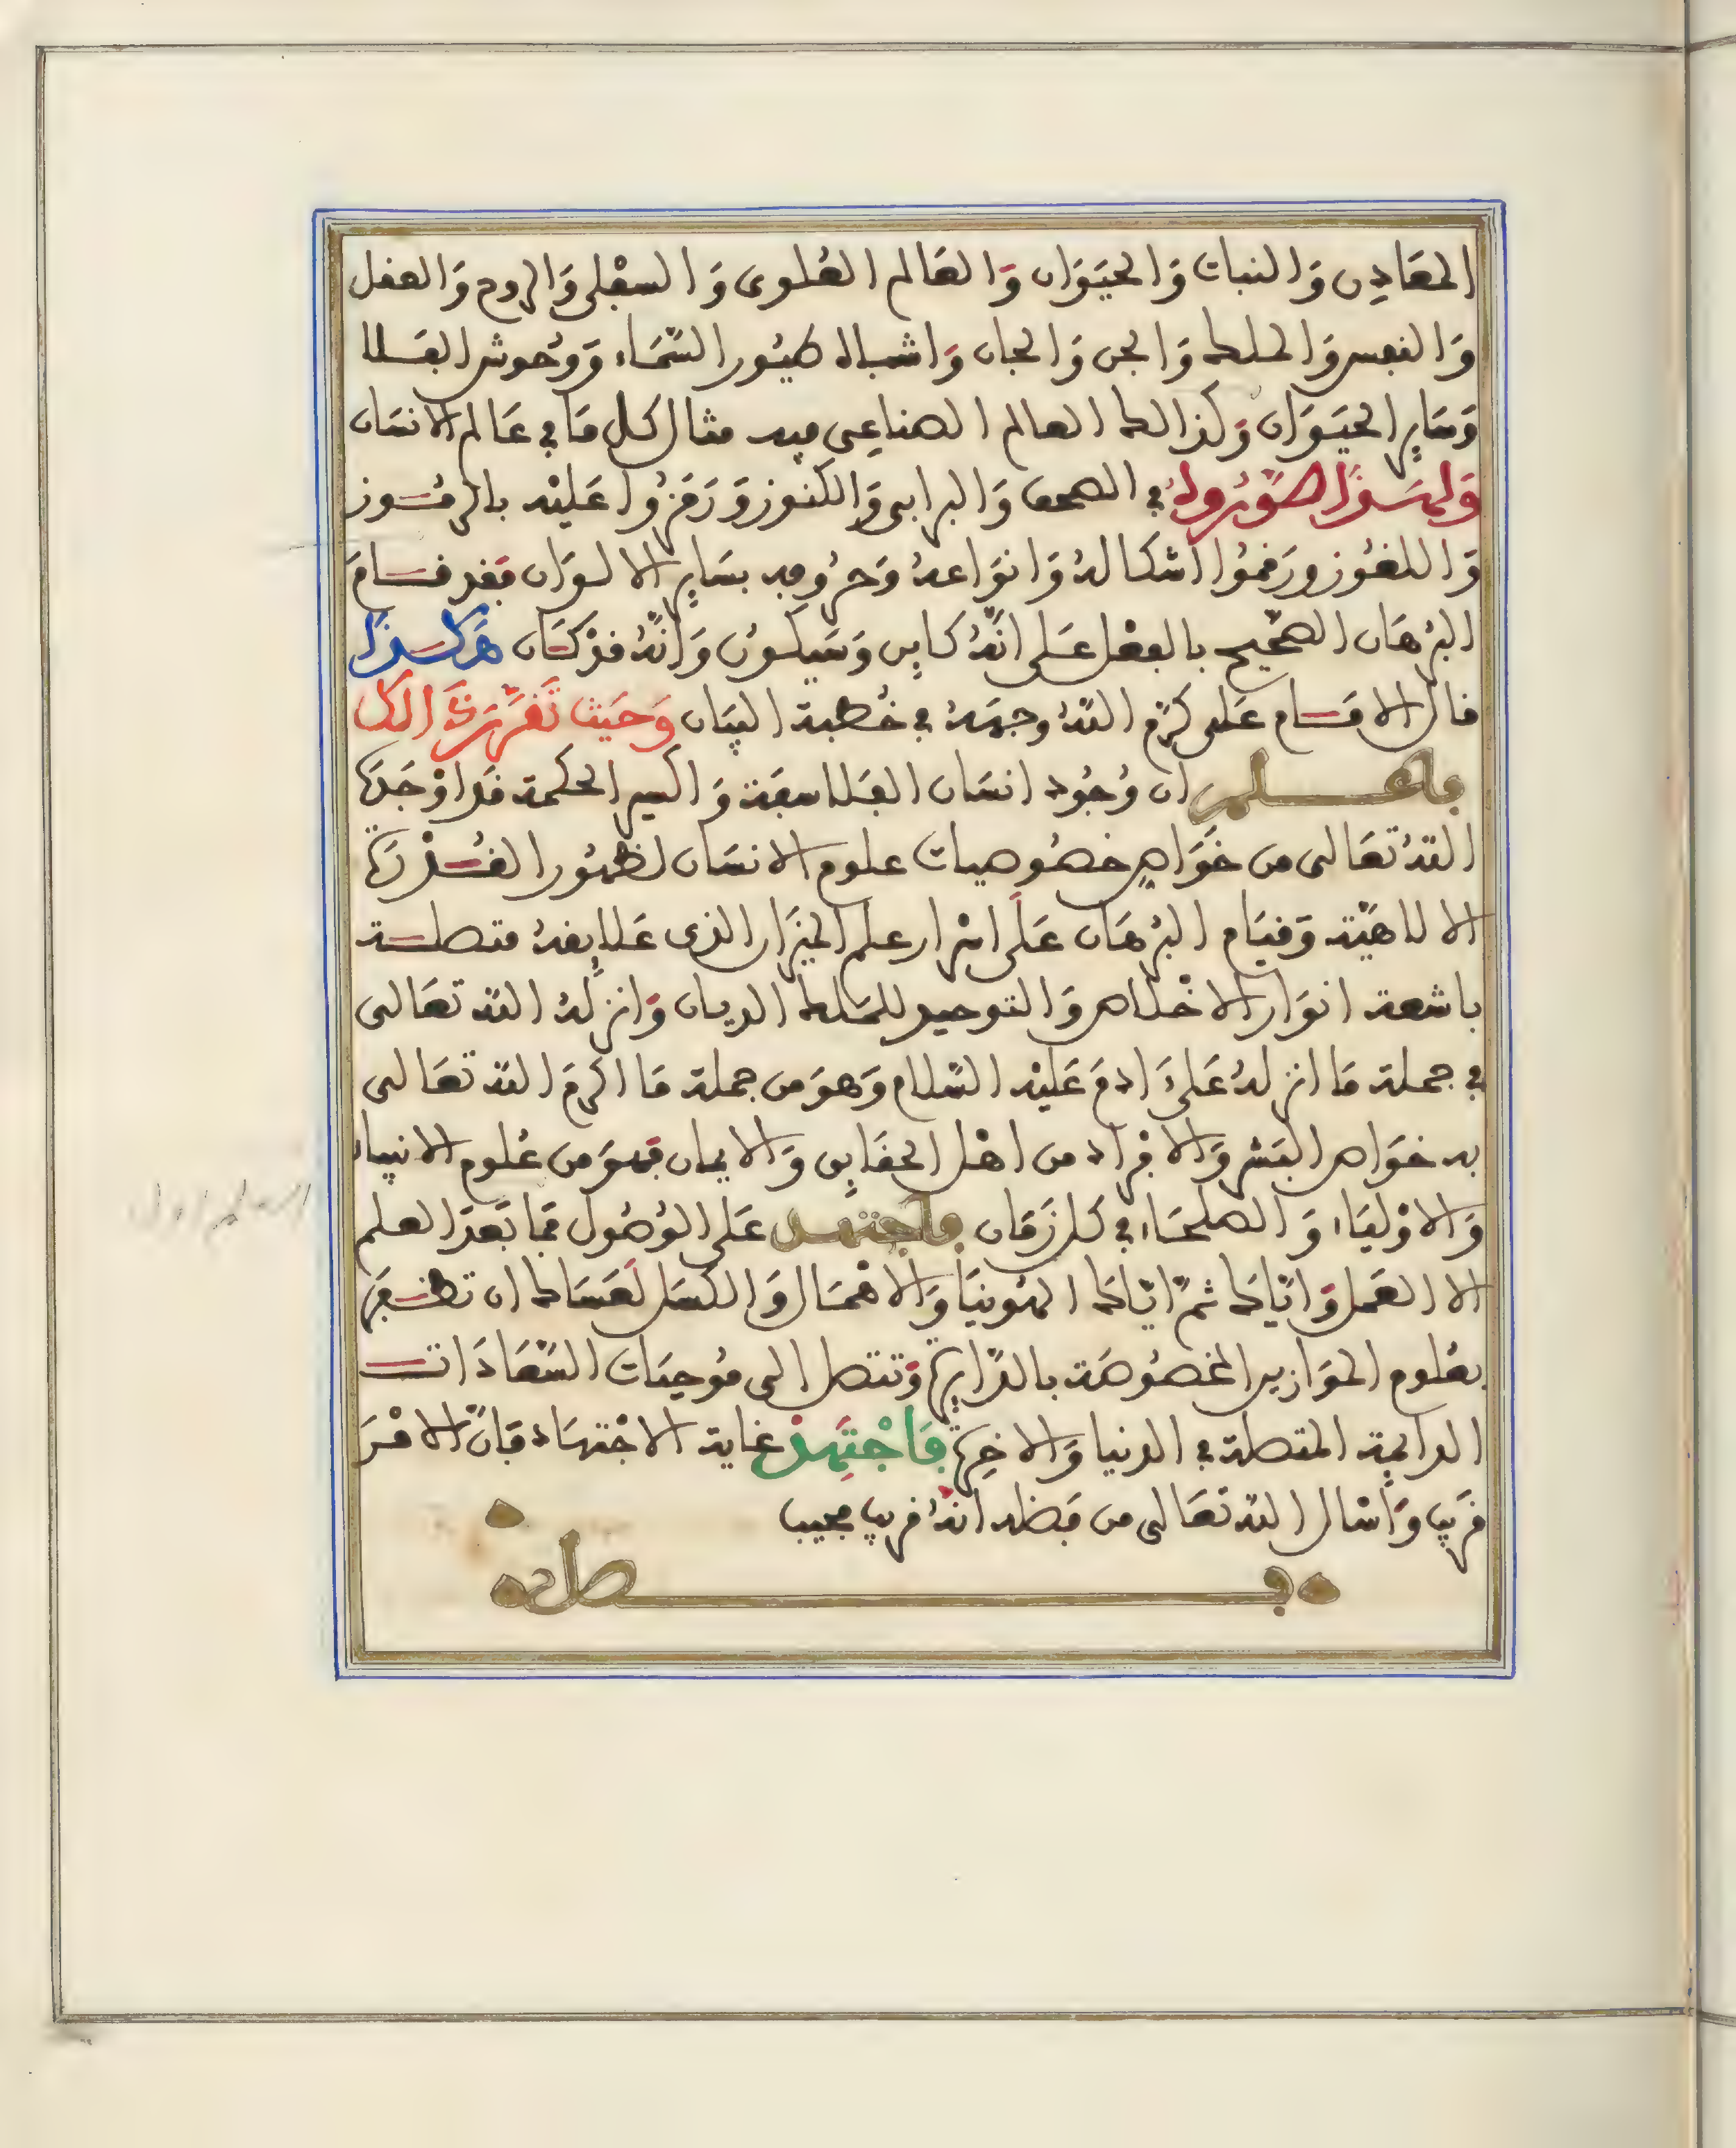 المعَادِن وَالنبات وَالحيَوَان وَالعَالم العُلوى وَالسفْلى وَالروح وَالعقل
وَالنفس وَالملك وَالجن وَالجان وَاشباه طيُور السّمَاء وَوُحوش الفَلا
وَسَاير الحيَوَان وَكذالك العالم الصناعِى فيه مثال كل مَا في عَالم الانسَان
وَلهَذا صَوّرُوهُ في الصحف وَالبرابى وَالكنوز وَرَمَزُوا عَليْه بالرمُوز
وَاللغُوز ورَقمُوا اشكالهُ وَانوَاعهُ وَحرُوفه بسَاير الالوَان فقد قَامَ
البُرْهَان الصّحيح بالفعْل عَلى انّهُ كاين وَسَيكونُ وَانّهُ قدْ كَان هَكذَا
قال الامَام عَلى كرّم اللّهُ وجهَهُ في خُطبة البيَان وَحَيث تَقَرّرَتْ الكل
فاعلم ان وُجُود انسَان الفلاسفَة وَاكسير الحكمة قدَ اوْجَدَهَا
اللّهُ تعَالى من خوَاص خصُوصيات علوم الانسَان لظهُور القُدْرَة
الالاهيّة وَقيَام البُرْهَان عَلَى اسْرار علم الميزَان الذى عَلايقهُ متصلة
باشعة انوَار الاخْلاص وَالتوحيد للمَلك الديان وَانزلهُ اللّه تعَالى
في جملة مَا انزلهُ عَلىَ ادمَ عَليْه السّلام وَهوَ من جملة مَا اكرمَ اللّه تعَالى
به خوَاص البَشر وَالافْرَاد من اهْل الحقَايق وَالايمان فهوَ من عُلوم الانبيا
وَالاوْليَاء وَالصلحَاء في كل زَمَان فاجتهد عَلى الوُصُول فمَا بَعدَ العلم
الا العَمل وَايّاكَ ثمّ ايّاكَ الهُوينَا وَالاهْمَال وَالكسَل لعَسَاك ان تظفَر
بعُلوم الموَازين المخصُوصَة بالدّايرة وَتتصل الى مُوجبَات السّعَادَات
الدايمة المتصلة في الدنيا وَالاخِرة فَاجْتَهِدْ غاية الاجْتهَاد فَانّ الامْرَ
قرَيب وَاسْال اللّه تعَالى من فَضله انّهُ قريب مجيب
فصل